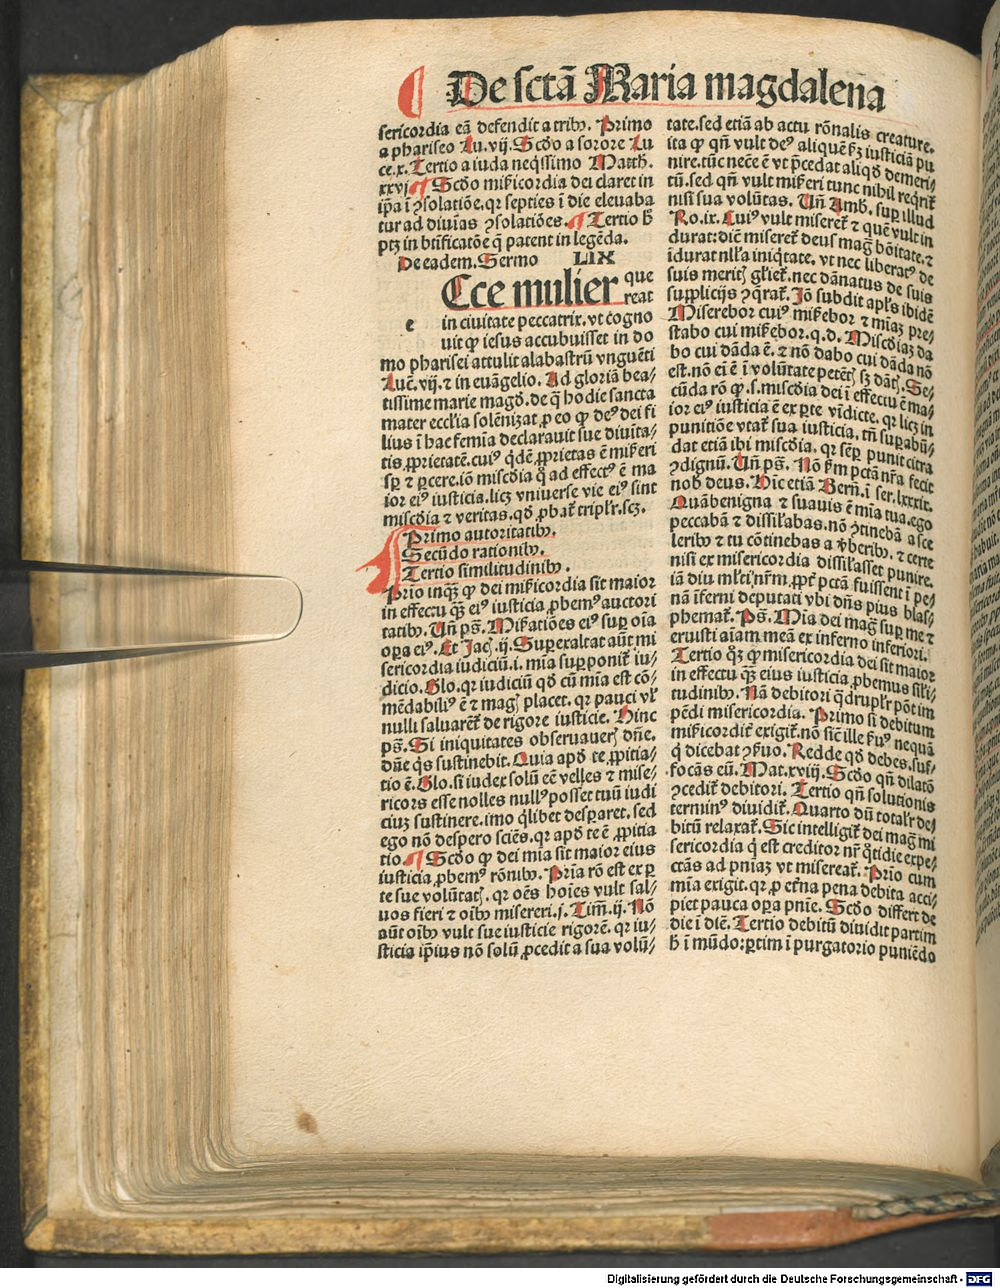 De sctā Maria magdalena
sericordia eā defendit a tribꝰ. Primo
a phariseo Lu. vij. Scďo a sorore Lu
ce. x. Tertio a iuda neq̄ssimo Matth.
xxvj. ¶ Scďo mīẜicordia dei claret in
ip̄a ī ꝯsolatiōe. qꝛ septies ī die eleuaba
tur ad diuīas ꝯsolatiōes. ¶ Tertio h̄
ptꝫ in btīficatōe q̄ patent in legēda.
De eadem. Sermo LIX
Ecce mulier que
reat
e in ciuitate peccatrix. vt cogno
uit ꝙ iesus accubuisset in do
mo pharisei attulit alabastrū vnguēti
Luc̄. vij. ⁊ in euāgelio. Ad gloriā bea⸗
tissime marie magď. de q̄ hodie sancta
mater eccl̄ia solēnizat, ꝓ eo ꝙ deꝰ dei fi
lius ī hac femīa declarauit sue diuīta⸗
tis ꝓprietatē. cuiꝰ qďē ꝓprietas ē mīẜeri
sꝑ ⁊ ꝑcere. iō mīscďia q̊ ad effectꝰ ē ma
ior eiꝰ iusticia. licꝫ vniuerse vie eiꝰ sint
miscďia ⁊ veritas. qď ꝓbať triplr̄. scꝫ.
Primo autoritatibꝰ.
Secūdo rationibꝰ.
Tertio similitudinibꝰ.
Prīo inqꝫ ꝙ dei mīẜicordia sit maior
in effectu qꝫ eiꝰ iusticia ꝓbemꝰ auctori
tatibꝰ. Uñ ps̄. Miẜatiōes eiꝰ suꝑ oīa
oꝑa eiꝰ. Et Jac̄. ij. Suꝑexaltat aūt mi
sericordia iudiciū. i. mīa suꝑponiť iu⸗
dicio. Glo. qꝛ iudiciū qď cū mīa est cō⸗
mēdabiliꝰ ē ⁊ magꝭ placet. qꝛ pauci vl̄
nulli saluareť de rigore iusticie. Hinc
ps̄. Si iniquitates obseruauerꝭ dn̄e.
dn̄e q̇s sustinebit. Quia apď te ꝓpitia⸗
tio ē. Glo. si iudex solū eē velles ⁊ mise⸗
ricors esse nolles nullꝰ posset tuū iudi
ciuꝫ sustinere. imo q̇libet desꝑaret. sed
ego nō despero sciēs. qꝛ apď te ē ꝓpitia
tio. ¶ Scďo ꝙ dei mīa sit maior eius
iusticia ꝓbemꝰ rōnibꝰ. Prīa rō est ex ꝑ
te sue volūtatꝭ. qꝛ oēs hoīes vult sal⸗
uos fieri ⁊ oībꝰ misereri. j. Tim̄. ij. Nō
aūt oībꝰ vult sue iusticie rigorē. qꝛ iu⸗
sticia ip̄ius nō solū ꝓcedit a sua volū⸗
tate. sed etiā ab actu rōnalis creature.
ita ꝙ qñ vult deꝰ aliquē ẜꝫ iusticiā pu
nire. tūc necē ē vt p̄cedat aliqď demeri⸗
tū. sed qñ vult miẜeri tunc nihil req̇riť
nisi sua volūtas. Uñ Amb̄. suꝑ illud
Ro. ix. Cuiꝰ vult misereť ⁊ quē vult in
durat: dic̄ misereť deus maḡ bōitate. ⁊
īdurat nll̄a iniq̇tate. vt nec liberatꝰ de
suis meritꝭ gl̄ieť. nec dānatus de suis
supplicijs ꝯq̄rať. Jō subdit apl̄s ibidē
Miserebor cuiꝰ miẜebor ⁊ miaꝫ pre⸗
stabo cui miẜebor. q. d. Miscďiaꝫ da
bo cui dāda ē. ⁊ nō dabo cui dāda nō
est. nō ei ē ī volūtate petētꝭ sꝫ dātꝭ. Se⸗
cūda rō ꝙ .s. miscďia dei ī effectu ē ma⸗
ior eiꝰ iusticia ē ex ꝑte vīdicte. qꝛ licꝫ in
punitiōe vtať sua iusticia. tn̄ suꝑabū⸗
dat etiā ibi miscďia. qꝛ sēꝑ punit citra
ꝯdignū. Uñ ps̄. Nō ẜm pctā nr̄a fecit
nob̄ deus. Hic etiā Bern̄. ī ser. lxxxij.
Quā benigna ⁊ suauis ē mīa tua. ego
peccabā ⁊ dissil̄abas. nō ꝯtinebā a sce
leribꝰ ⁊ tu cōtinebas a v̄beribꝰ. ⁊ certe
nisi ex misericordia dissil̄asset punire.
iā diu ml̄ti nr̄m ꝓpť pctā fuissent ī pe⸗
nā īferni deputati vbi dn̄s pius blas⸗
phemať. Ps̄. Mīa dei maḡ suꝑ me ⁊
eruisti aīam meā ex inferno inferiori.
Tertio qꝫ ꝙ misericordia dei sit maior
in effectu qꝫ eius iusticia ꝓbemus sil̄i⸗
tudinibꝰ. Nā debitori q̄druplr̄ pōt im
pēdi misericordia. Primo si debitum
miẜicordit̄ exigiť. nō sic̄ ille ẜuꝰ nequā
q̇ dicebat ꝯẜuo. Redde qď debes. suf⸗
focās eū. Mat. xviij. Scďo qñ dilatō
ꝯcediť debitori. Tertio qñ solutionis
terminꝰ diuidiť. Quarto dū totalr̄ de⸗
bitū relaxať. Sic intelligiť dei maḡ mi
sericordia q̇ est creditor nr̄ q̊tidie expe⸗
ctās ad pn̄iaꝫ vt misereať. Prīo cum
mīa exigit. qꝛ ꝓ et̄na pena debita acci⸗
piet pauca oꝑa pn̄ie. Scďo differt de
die ī diē. Tertio debitū diuidit partim
h̄ ī mūdo: ꝑtim ī purgatorio puniēdo
Digitalisierung gefördert durch die Deutsche Forschungsgemeinschaft - DFG